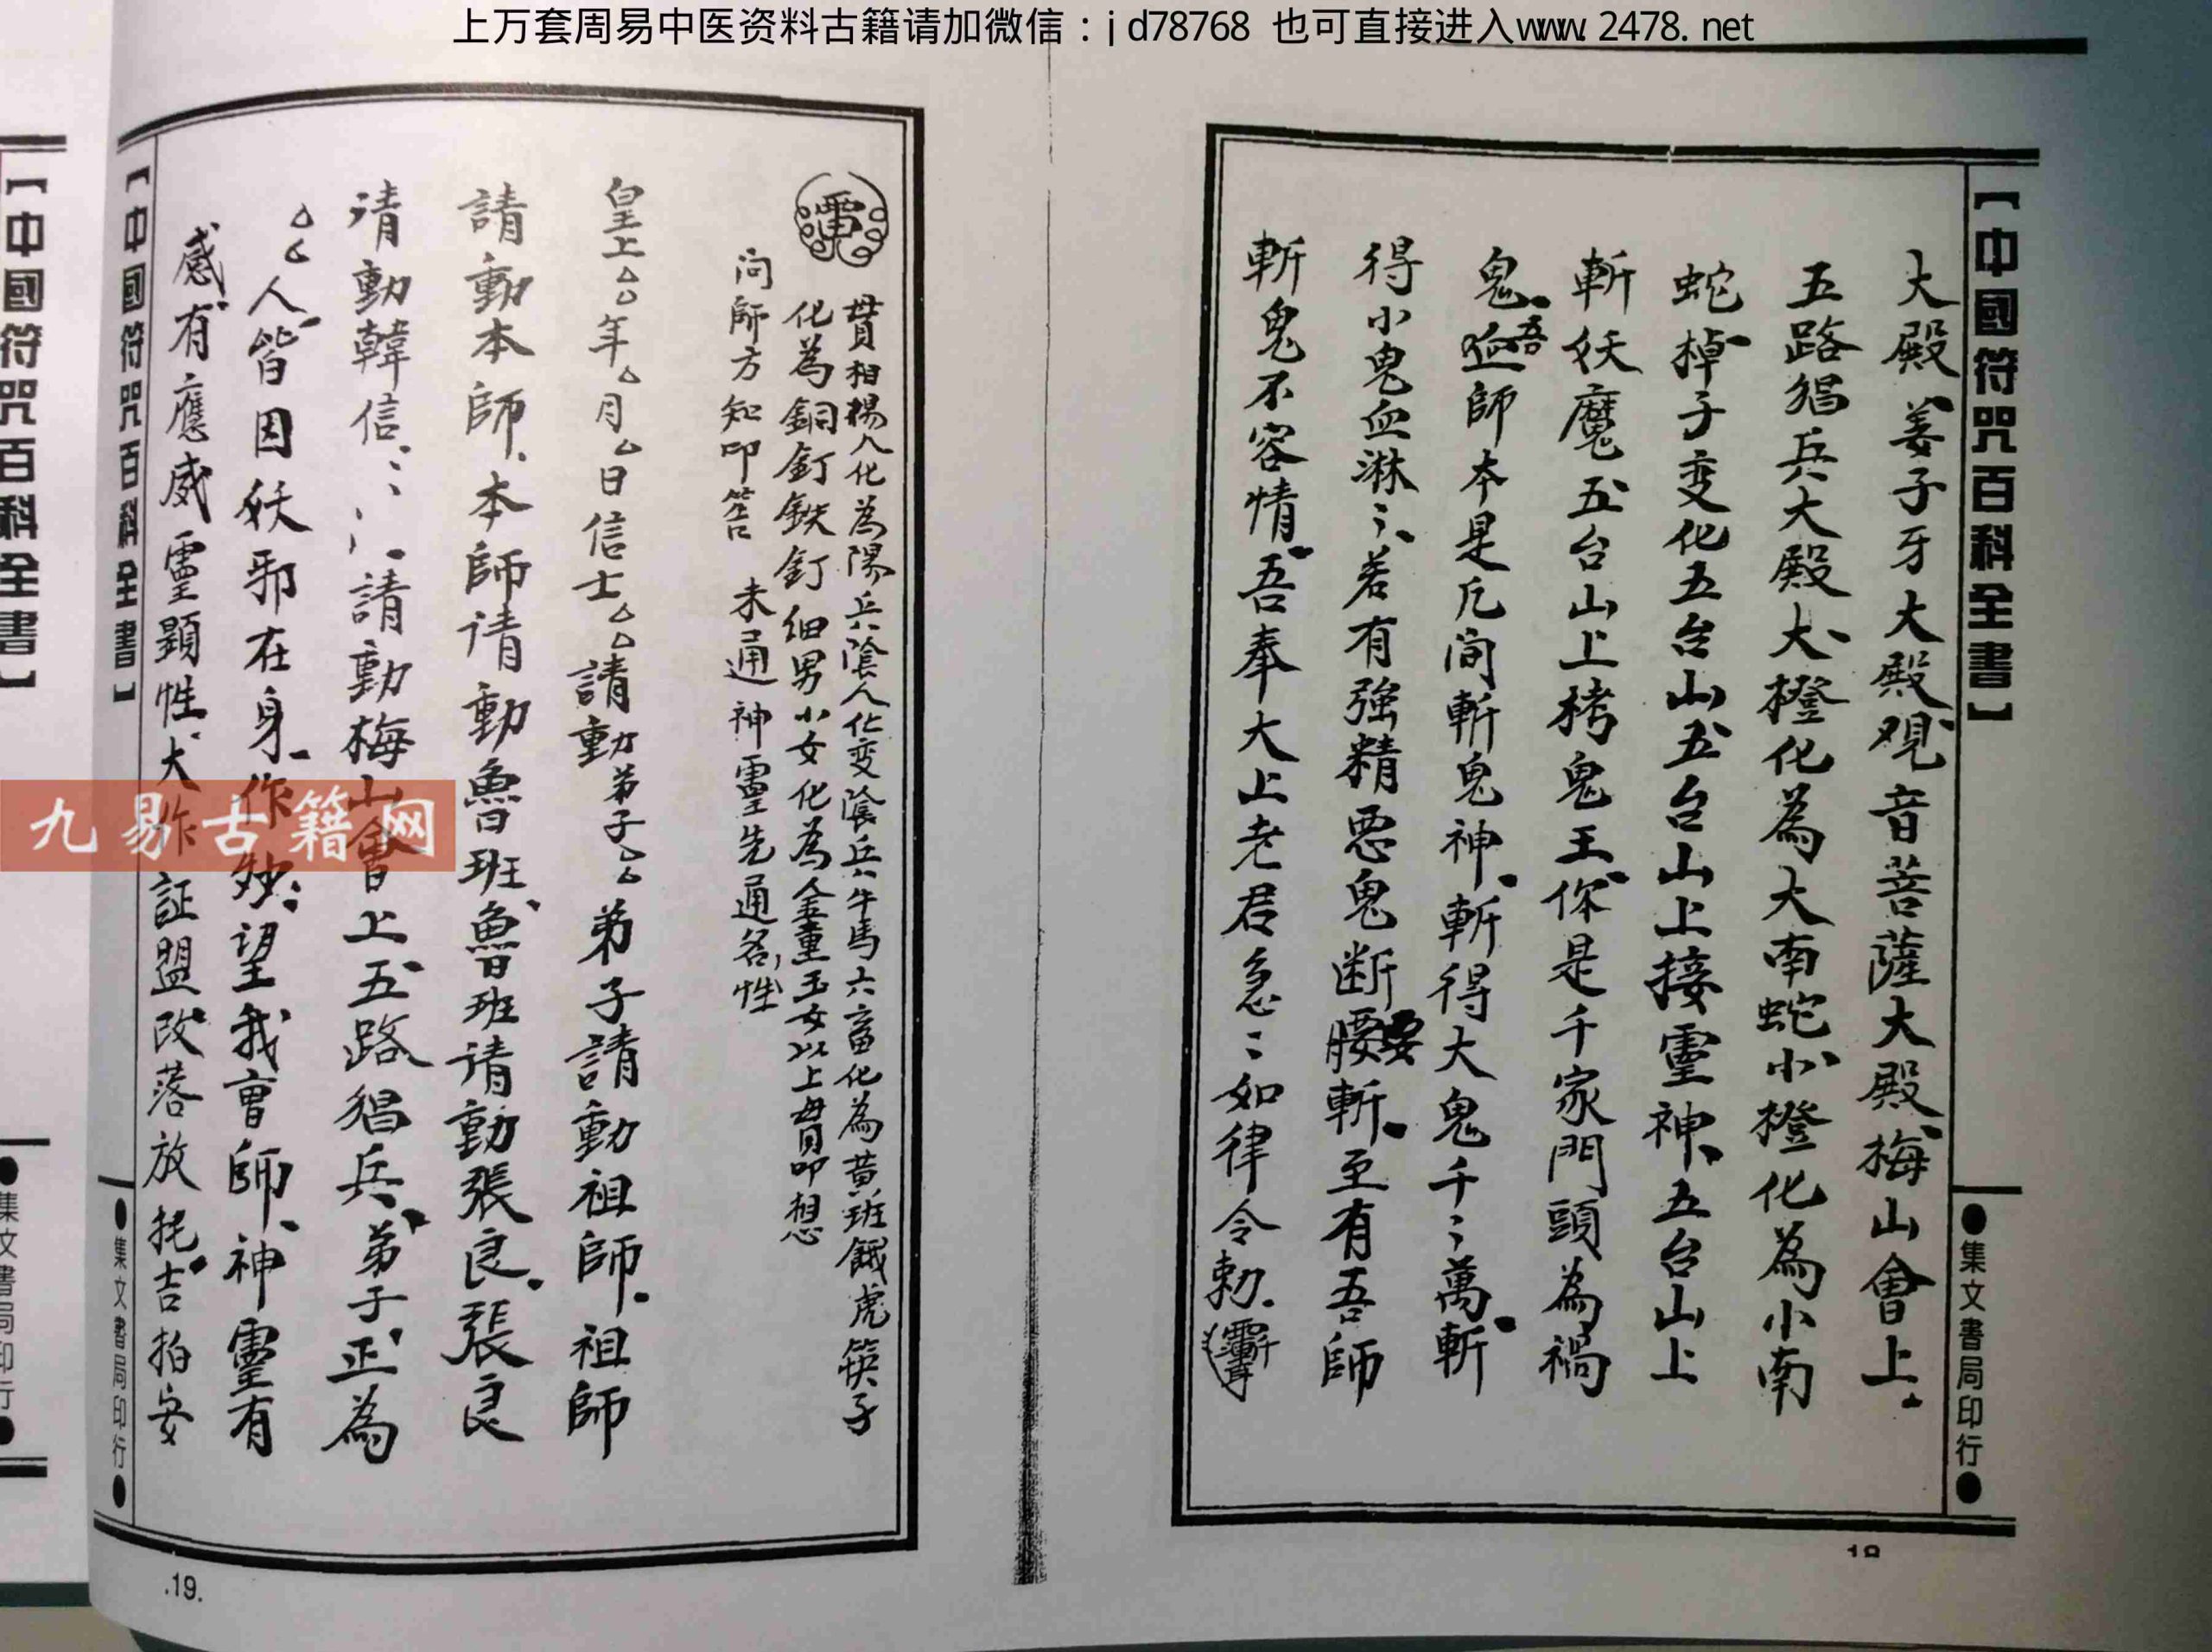 上万套周易中医资料古籍请加微信：jd78768 也可直接进入www.2478.net
【中國符咒百科全書】
●集文書局印行●
大殿姜子牙大殿观音菩薩大殿梅山會上
五路猖兵大殿大橙化為大南蛇小橙化為小南
蛇棹子变化五台山五台山上接靈神五台山上
斬妖魔五台山上拷鬼王你是千家門頭為禍
鬼吾師本是凡间斬鬼神斬得大鬼千〻萬斬
得小鬼血淋〻若有強精恶鬼断腰斬至有吾師
斬鬼不容情吾奉大上老君急〻如律令勅
貫相揚人化為陽兵陰人化变陰兵牛馬六畜化為黄班餓虎筷子
化為銅釘鉄釘细男小女化為金童玉女以上貫叩想
问師方知叩答 未通神靈先通名性
皇上△△年△月△日信士△△請動弟子△△弟子請動祖師祖師
請動本師本師请動魯班魯班请動張良張良
请動韓信〻〻請動梅山會上五路猖兵弟子正為
△△人皆因妖邪在身作妙望我曹師神靈有
感有應威靈顕性大作証盟改落放托吉拍安
【中國符咒百科全書】
●集文書局印行●
.19.
【中國符咒百科全書】
集文書局印行
九易古籍网